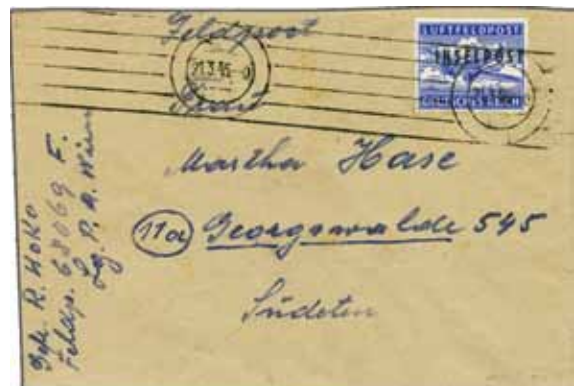 Feldpost
21.3.45
LUFTFELDPOST
INSELPOST
DEUTSCHES REICH
Martha Hase
11a Georgswalde 545
Sudeten
R. Hoke
Feldp. 68069 F.
Lg. P. A. Wien